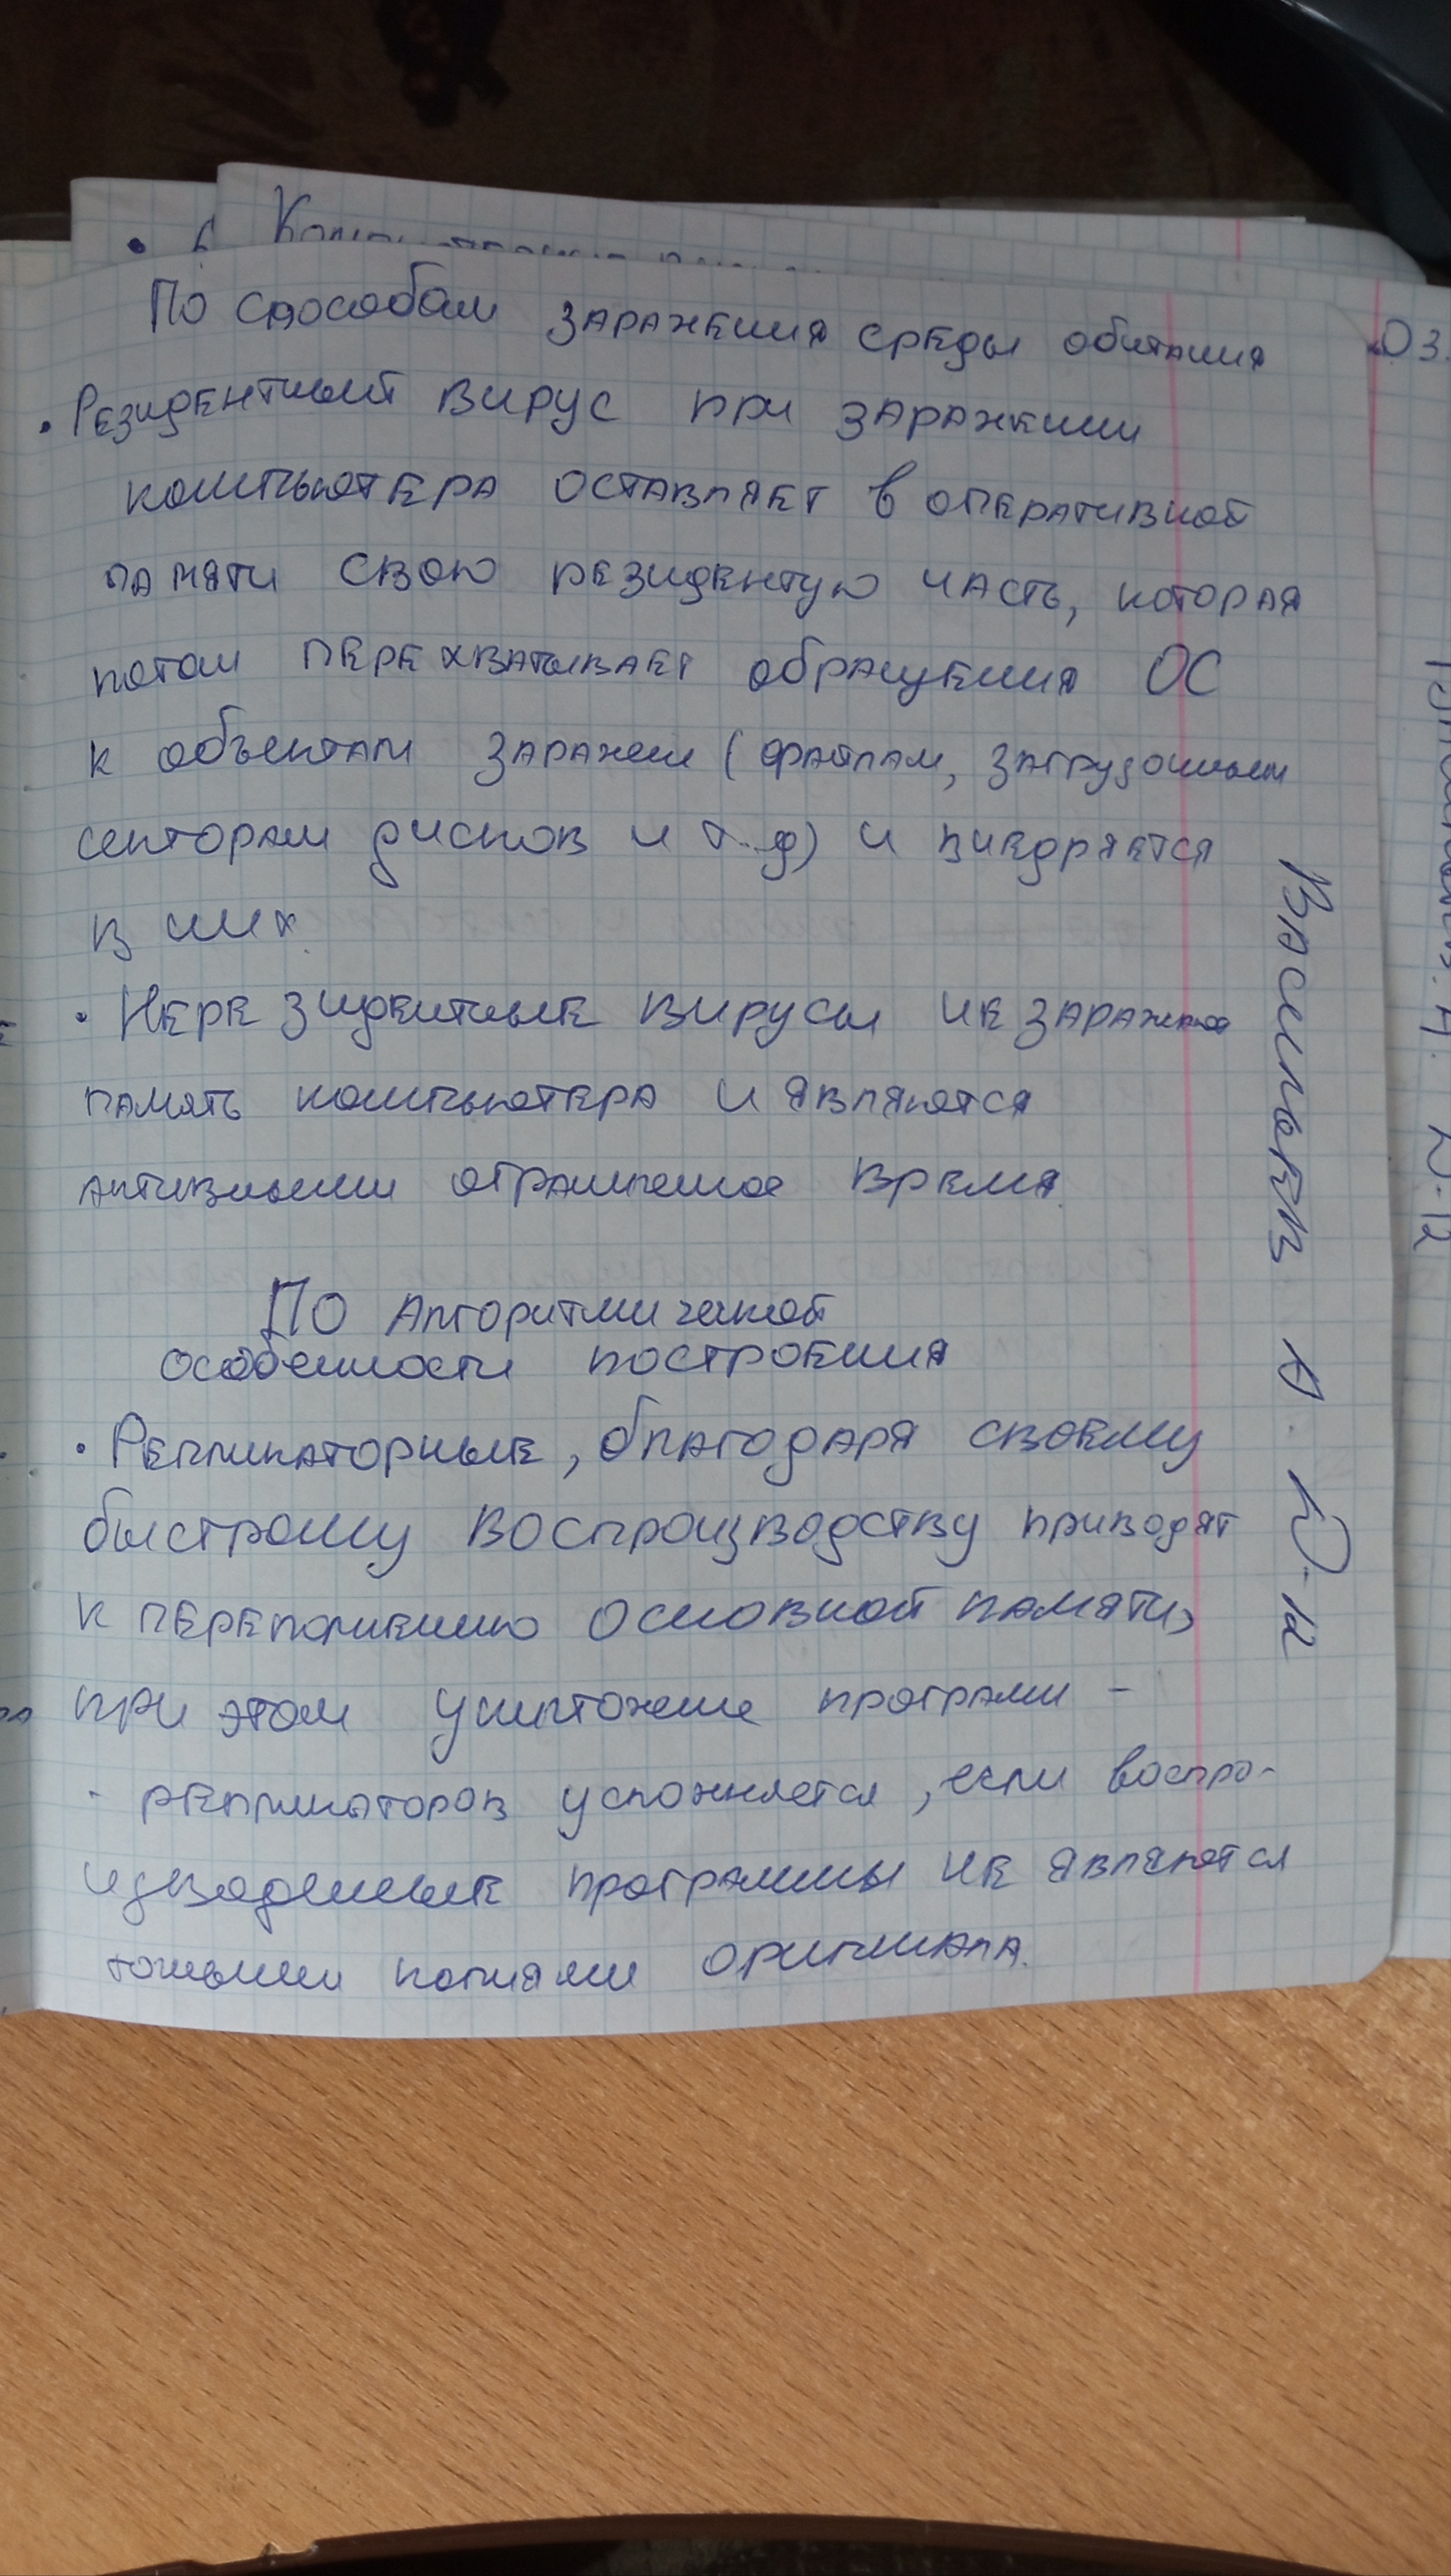 По способам заражения среды обитания
• Резидентный вирус при заражении
компьютера оставляет в оперативной
памяти свою резидентую часть, которая
потом перехватывает обращения ОС
к объектам заражен (файлам, загрузочным
секторам дисков и т.д) и внедряется
в них
• Нерезидентные вирусы не заражают
память компьютера и являются
активными ограниченное время
По Алгоритмической
особенности построения
• Репликаторные, благодаря своему
быстрому воспроизводству приводят
к переполнению основной памяти,
при этом уничтожение программ -
- репликаторов усложняется, если воспро-
изводенные программы не являются
точными копиями оригинала.
03.